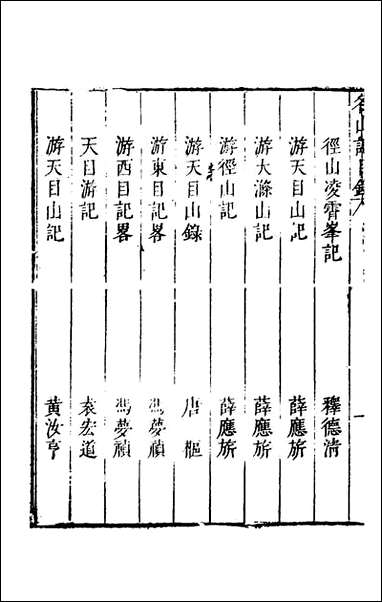 名山記目錄
徑山凌霄峯記 釋德清
游天目山記 薛應旂
游大滌山記 薛應旂
游徑山記 薛應旂
游天目山錄 唐樞
游東目記畧 馮夢禎
游西目記畧 馮夢禎
天目游記 袁宏道
游天目山記 黄汝亨